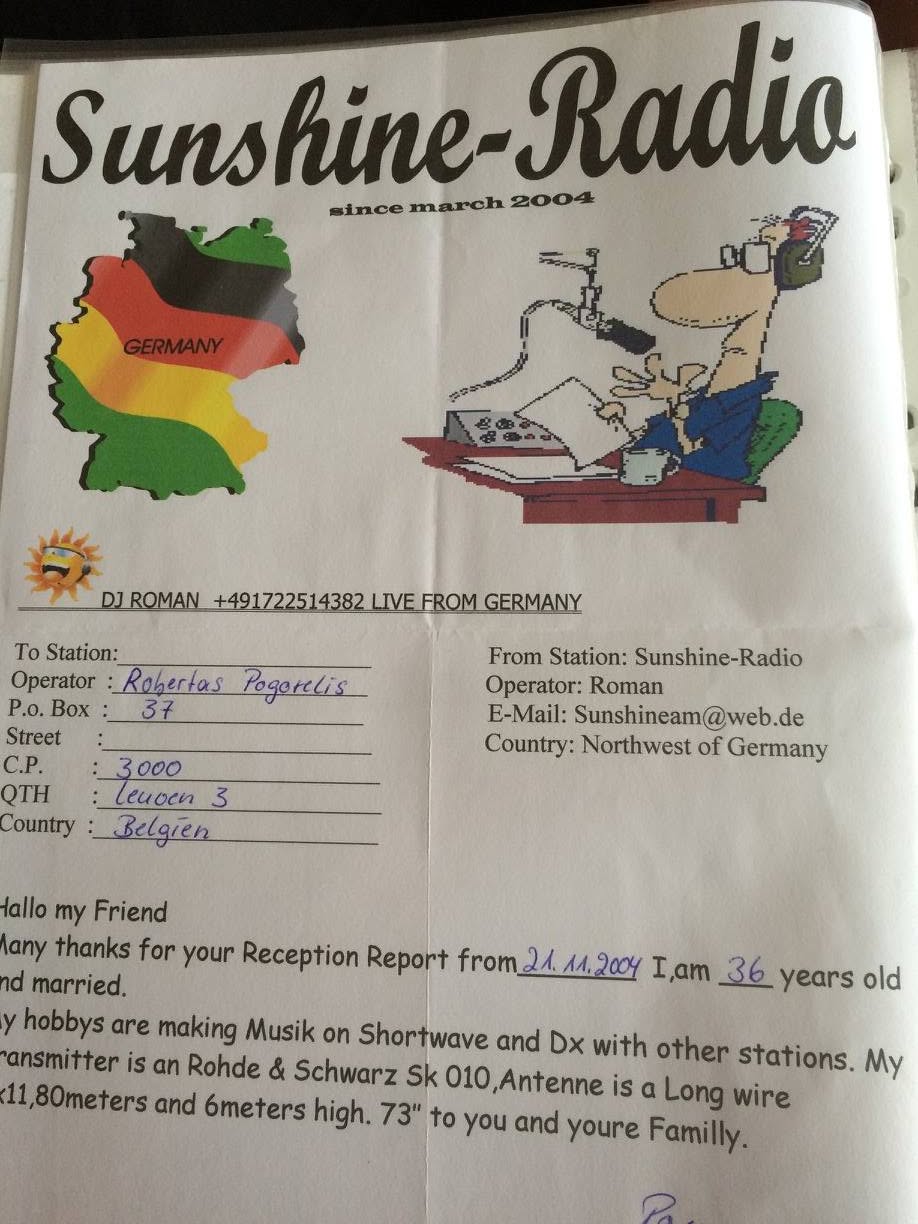 Sunshine-Radio
since march 2004
GERMANY
DJ ROMAN +491722514382 LIVE FROM GERMANY
To Station:
Operator : Robertas Pogorelis
P.o. Box : 37
Street :
C.P. : 3000
QTH : Leuven 3
Country : Belgien
From Station: Sunshine-Radio
Operator: Roman
E-Mail: Sunshineam@web.de
Country: Northwest of Germany
Hallo my Friend
Many thanks for your Reception Report from 21.11.2004 I,am 36 years old
and married.
My hobbys are making Musik on Shortwave and Dx with other stations. My
Transmitter is an Rohde & Schwarz Sk 010,Antenne is a Long wire
x11,80meters and 6meters high. 73" to you and youre Familly.